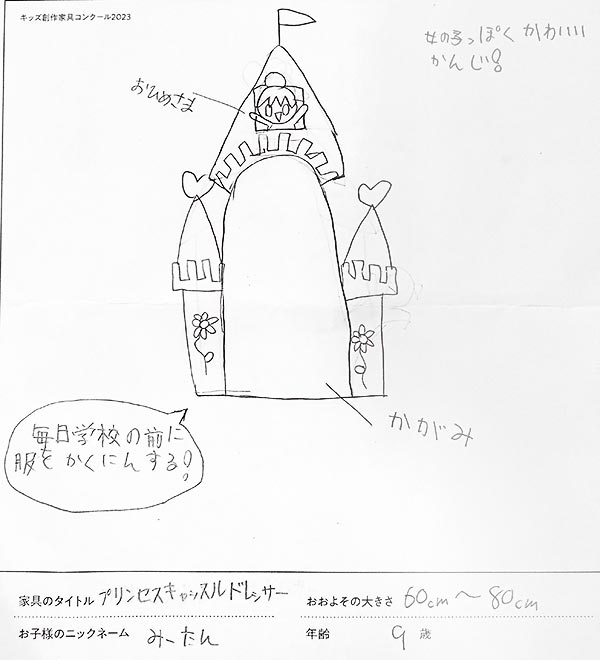 キッズ創作家具コンクール2023
女の子っぽく かわいい
かんじ!
おひめさま
かがみ
毎日学校の前に
服を かくにんする!
家具のタイトル プリンセスキャッスルドレッサー
おおよその大きさ 60cm〜80cm
お子様のニックネーム みーたん
年齢 9 歳